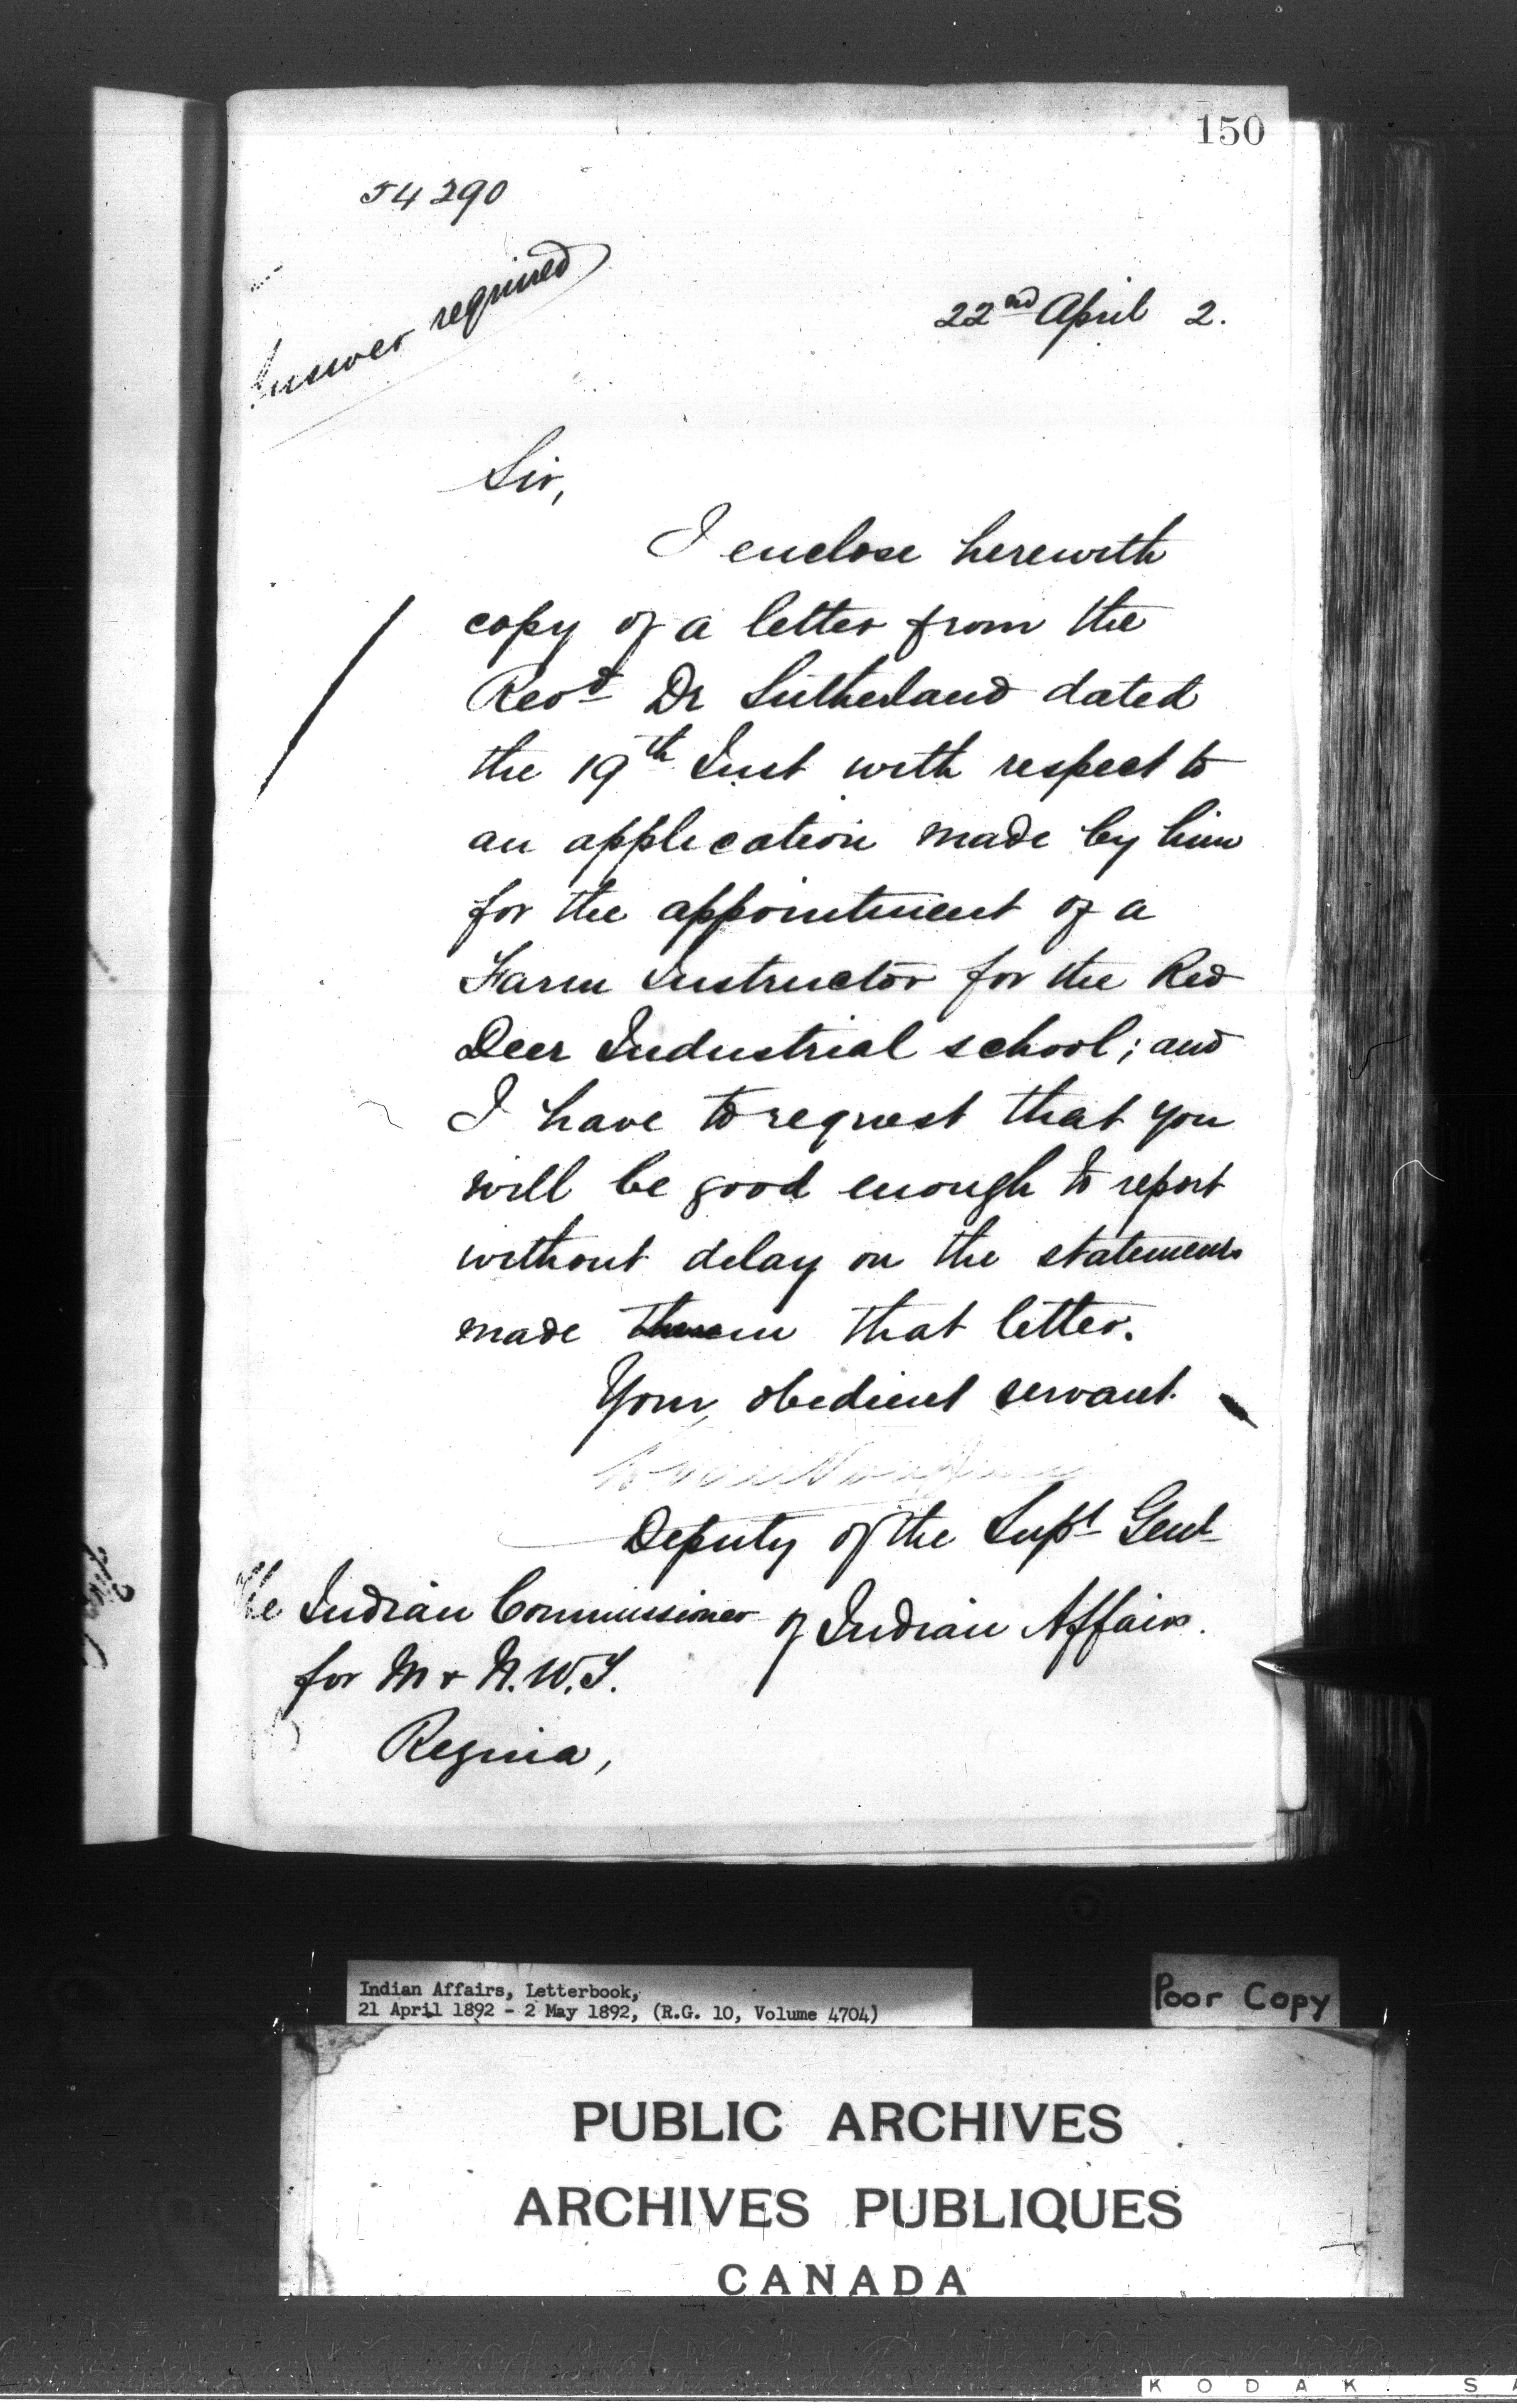 150
54290
Answer required
22nd April 2.
Sir,
I enclose herewith
copy of a letter from the
Revd Dr Sutherland dated
the 19th Inst with respect to
an application made by him
for the appointment of a
Farm Instructor for the Red
Deer Industrial school; and
I have to request that you
will be good enough to report
without delay on the statements
made in that letter.
Your obedient servant.
Deputy of the Supt Genl
of Indian Affairs.
The Indian Commissioner
for M & N.W.T.
Regina,
Indian Affairs, Letterbook,
21 April 1892 - 2 May 1892, (R.G. 10, Volume 4704)
Poor Copy
PUBLIC ARCHIVES
ARCHIVES PUBLIQUES
CANADA
KODAK SA